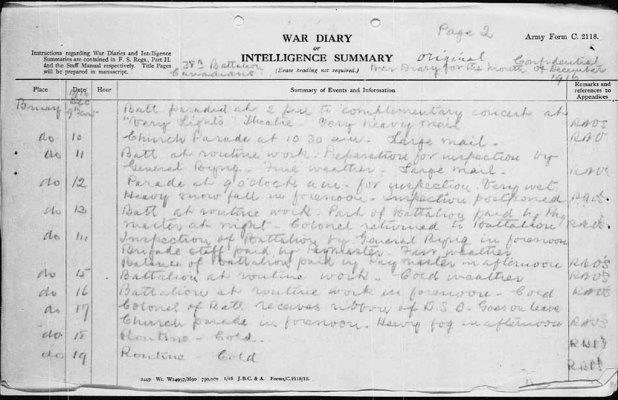 Page 2
WAR DIARY
Army Form C. 2118.
or
INTELLIGENCE SUMMARY
(Erase heading not required.)
Instructions regarding War Diaries and Intelligence
Summaries are contained in F. S. Regs., Part II.
and the Staff Manual respectively. Title Pages
will be prepared in manuscript.
38th Battalion
Canadians
Original
Confidential
War Diary for the month of December
1916
Place Date Hour Summary of Events and Information Remarks and references to Appendices
Bruay Dec 9th Batt paraded at 2 pm to complimentary concert at
"Very Lights" Theatre. Very heavy mail
do 10 Church Parade at 10.30 a.m. Large mail.
do 11 Batt at routine work. Preparation for inspection by
General Byng. Fine weather. Large mail.
do 12 Parade at 9 o'clock a.m. for inspection. Very wet.
Heavy snow fall in forenoon. Inspection postponed
do 13 Batt at routine work. Part of Battalion paid by Pay
master at night. Colonel returned to Battalion
do 14 Inspection of Battalion by General Byng in forenoon
Brigade staff paid by Paymaster. Fair weather
Balance of Battalion paid by Paymaster in afternoon
do 15 Battalion at routine work. Cold weather
do 16 Battalion at routine work in forenoon. Cold
do 17 Colonel of Batt receives ribbon of D.S.O. Goes on leave
Church parade in forenoon. Heavy fog in afternoon
do 18 Routine - Cold.
do 19 Routine - Cold
2449 Wt. W14957/M90 750,000 1/16 J.B.C. & A. Forms/C.2118/12.